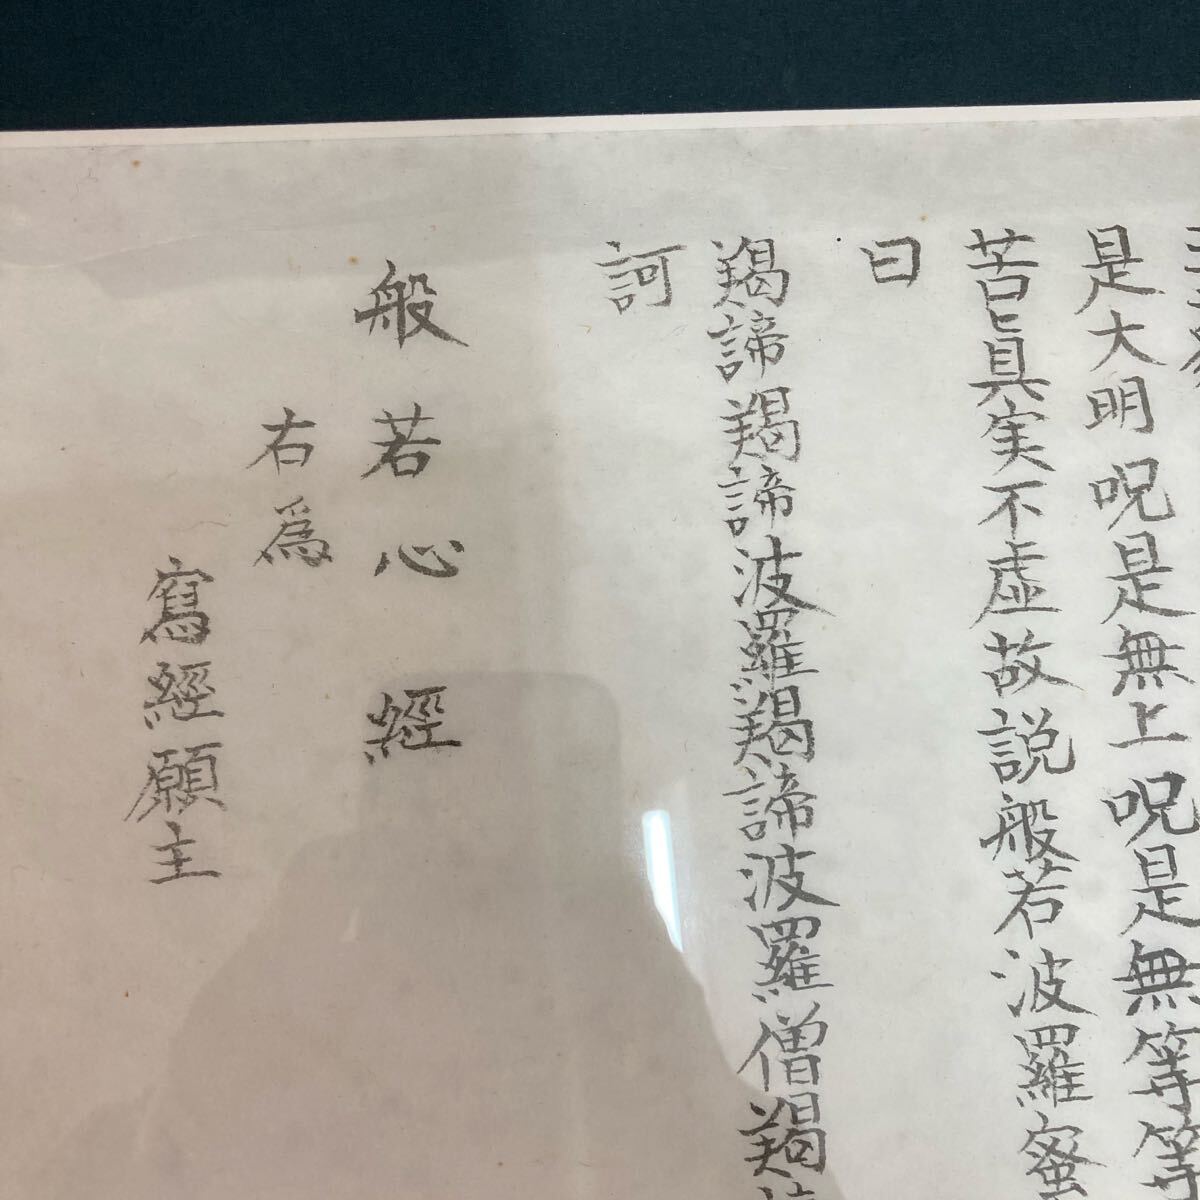 是大明呪是無上呪是無等等
苦真実不虚故説般若波羅蜜
曰
羯諦羯諦波羅羯諦波羅僧羯
訶
般若心經
右為
寫經願主